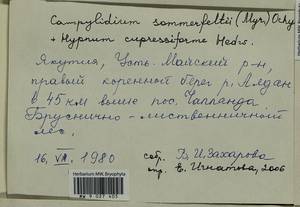 Campylidium sommerfeltii (Myr.) Ochy
+ Hypnum cupressiforme Hedw.
Якутия, Усть-Майский р-н,
правый коренной берег р. Алдан
в 45 км выше пос. Чаппанда
Бруснично-лиственничный
лес.
16. VII. 1980 собр. В.И. Захарова
опр. Е. Игнатова, 2006
Herbarium MW, Bryophyta
MW 9 027 403